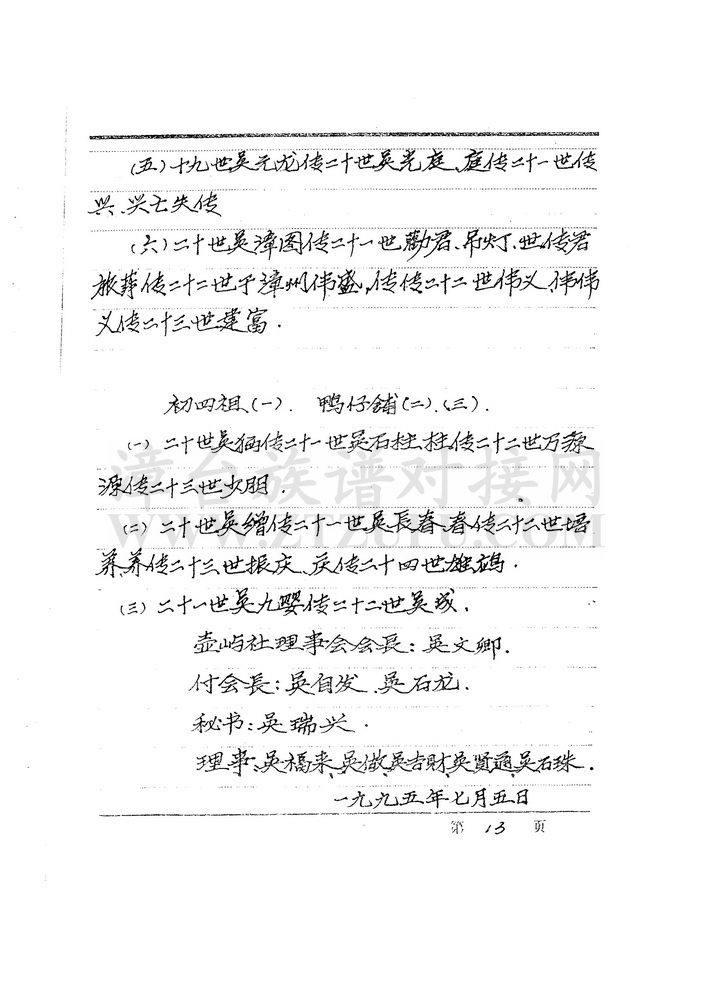 (五)十九世吴元龙传二十世吴光庭、庭传二十一世传
兴、兴亡失传
(六)二十世吴漳图传二十一世勸君、吊灯、世传君
旅葬传二十二世于漳州伟盛,传传二十二世伟义、伟伟
义传二十三世建富.
初四祖、(一). 鸭仔舖(二).(三).
(一)二十世吴猫传二十一世吴石柱、柱传二十二世万源
源传二十三世火明.
(二)二十世吴缯传二十一世吴長春、春传二十二世培
养、养传二十三世振庆、庆传二十四世雄鸿.
(三)二十一世吴九婴传二十二世吴成.
壶屿社理事会会長:吴文卿.
付会長:吴自发、吴石龙.
秘书:吴瑞兴.
理事、吴福来、吴做、吴吉财、吴贤通、吴石珠.
一九九五年七月五日
第 13 页
漳台族谱对接网
www.ztzupu.com